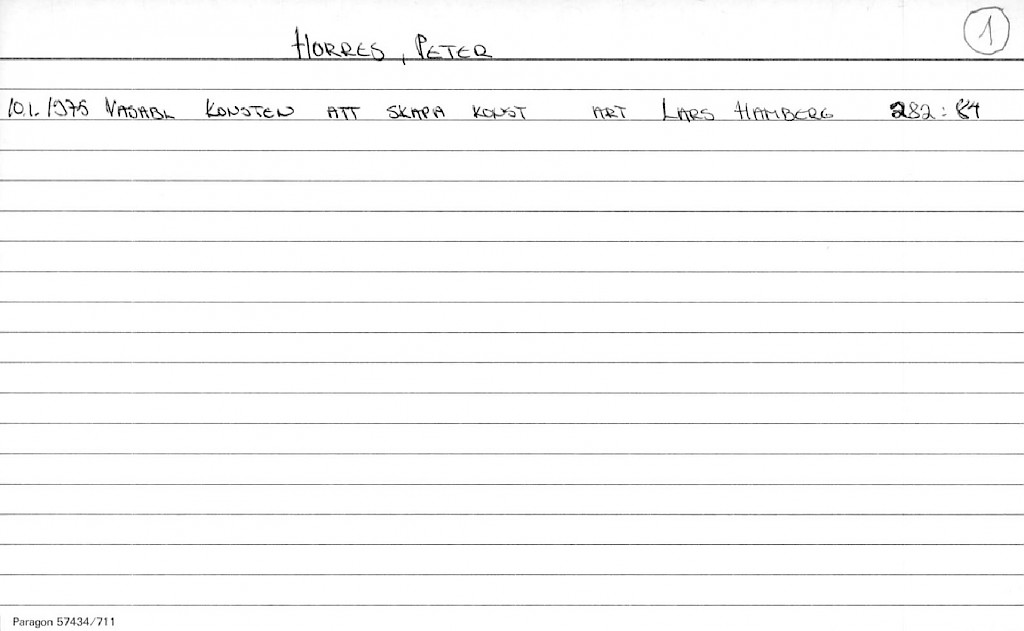 HORRES, PETER
1
10.1.1975 VASABL KONSTEN ATT SKAPA KONST ART LARS HAMBERG 282:84
Paragon 57434/711